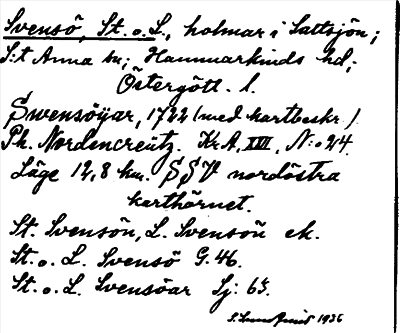 Svensö, St. o. L., holmar i Saltsjön;
S:t Anna sn; Hammarkinds hd;
Östergötl. l.
Swensöÿar, 1722 (med kartbeskr.).
Ph. Nordencreütz. Kr.A. XVII, N:o 24.
Läge 12,8 km. SSV nordöstra
karthörnet.
St. Svensön, L. Svensön ek.
St. o. L. Svensö G. 46.
St. o. L. Svensöar Sj: 63.
1936